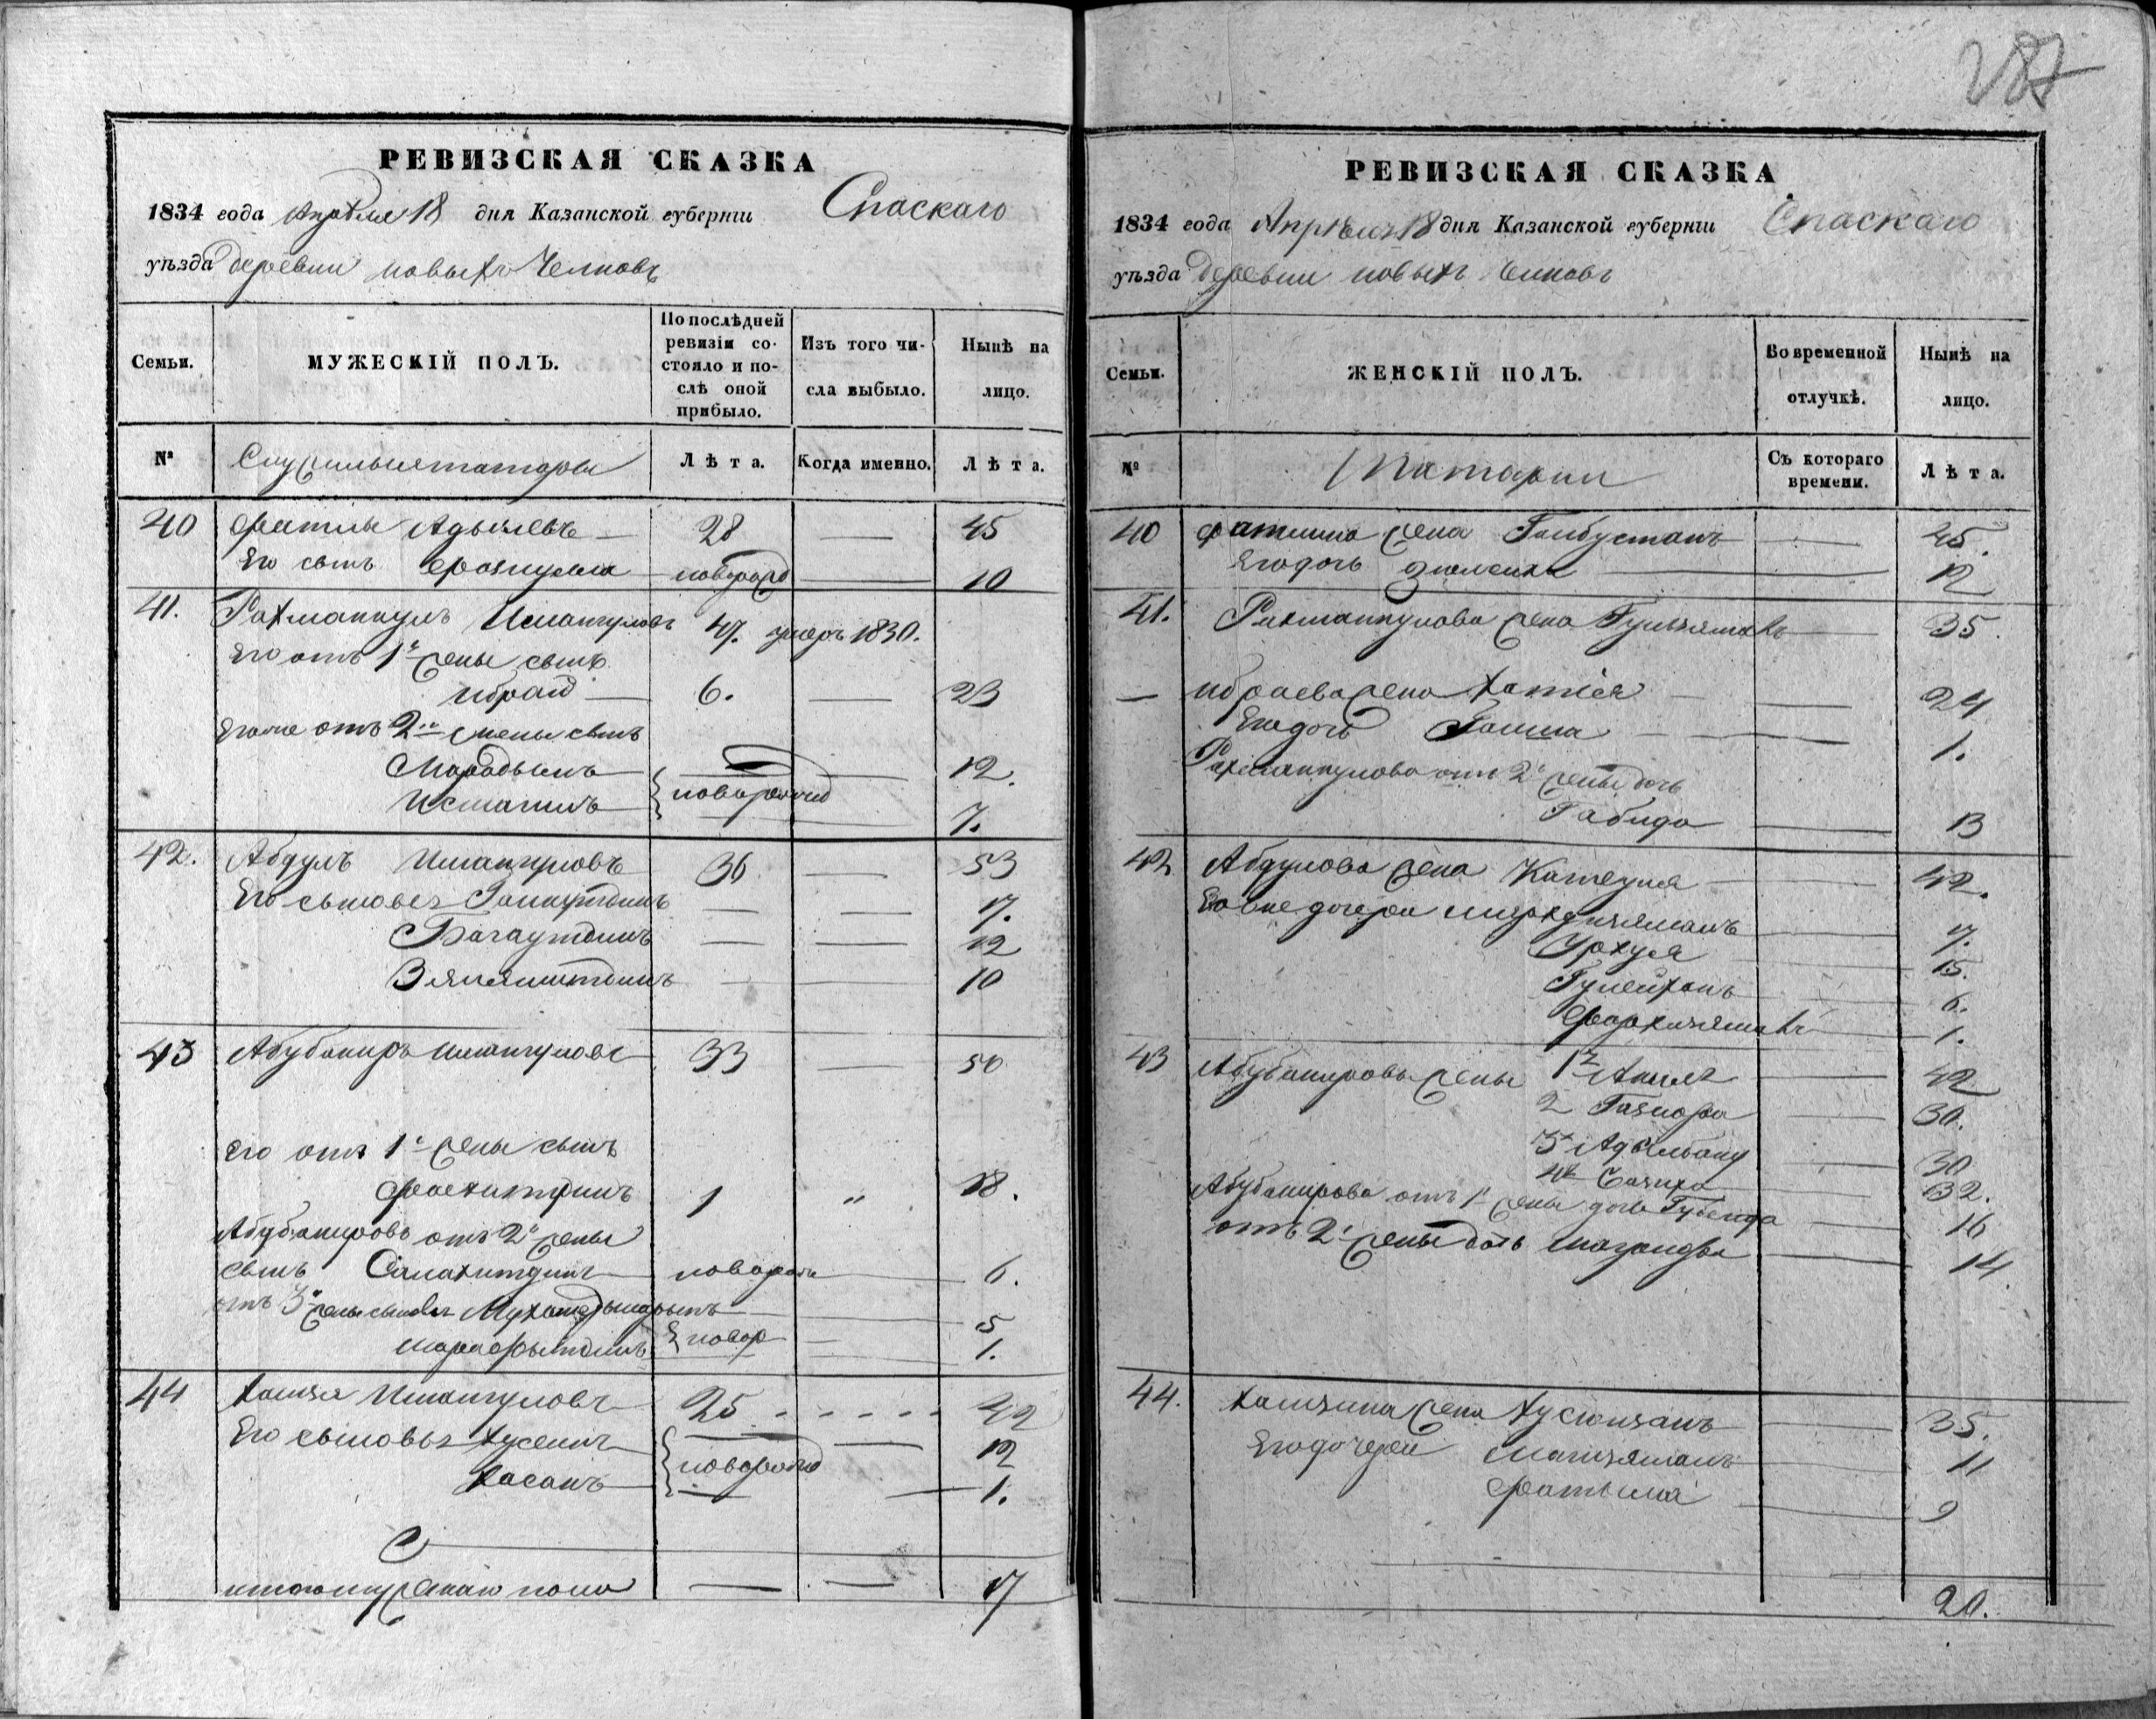 РЕВИЗСКАЯ СКАЗКА
1834 года Апреля 18 дня Казанской губерніи Спаскаго
уѣзда деревни новыхъ Челновъ
Семьи.
МУЖЕСКІЙ ПОЛЪ.
По послѣдней ревизіи состояло и послѣ оной прибыло.
Изъ того числа выбыло.
Нынѣ на лицо.
№
Служилыя татары
Лѣта.
Когда именно.
Лѣта.
40 Фаткы Адылевъ 28 45
Его сынъ новорожд 10
41. Рахманкулъ Иманкуловъ 47. умеръ 1830.
Его отъ 1й жены сынъ
Ибрай 6. 23
Егоже отъ 2й жены сынъ
12.
новорожд 7.
42. Абдулъ Иманкуловъ 36 53
Его сыновья 17.
Багаутдинъ 12
10
43 Абубакиръ Иманкуловъ 33 50
Его отъ 1й жены сынъ
1 " 18.
Абубакировъ отъ 2й жены
сынъ Салахитдинъ новорож 6.
отъ 3й жены сыновья 5
новор 1.
44 Хамзя Иманкуловъ 25 42
Его сыновья Хусеинъ 12
Хасанъ новорожд 1.
итого мужскаго пола 17
287
РЕВИЗСКАЯ СКАЗКА
1834 года Апрѣля 18 дня Казанской губерніи Спаскаго
уѣзда деревни новыхъ Челновъ
Семьи.
ЖЕНСКІЙ ПОЛЪ.
Во временной отлучкѣ.
Нынѣ на лицо.
№
Татарки
Съ котораго времени.
Лѣта.
40 жена Гюлбустанъ 45.
Его дочь 12
41. Рахманкулова жена Гульзямалъ 35.
Ибраева жена Хатися 24
Его дочь 1.
Рахманкулова отъ 2й жены дочь
Габида 13
42 Абдулова жена 42.
Его дочери 17.
15.
Гулейханъ 6.
1.
43 Абубакировы жены 1я 42
2 30.
3я Адельбану 30
4я 32.
Абубакирова отъ 1й жены дочь 16
отъ 2й жены дочь 14.
44. Хамзина жена Хуснизянъ 35.
Его дочери 11
Фатыма 9
20.